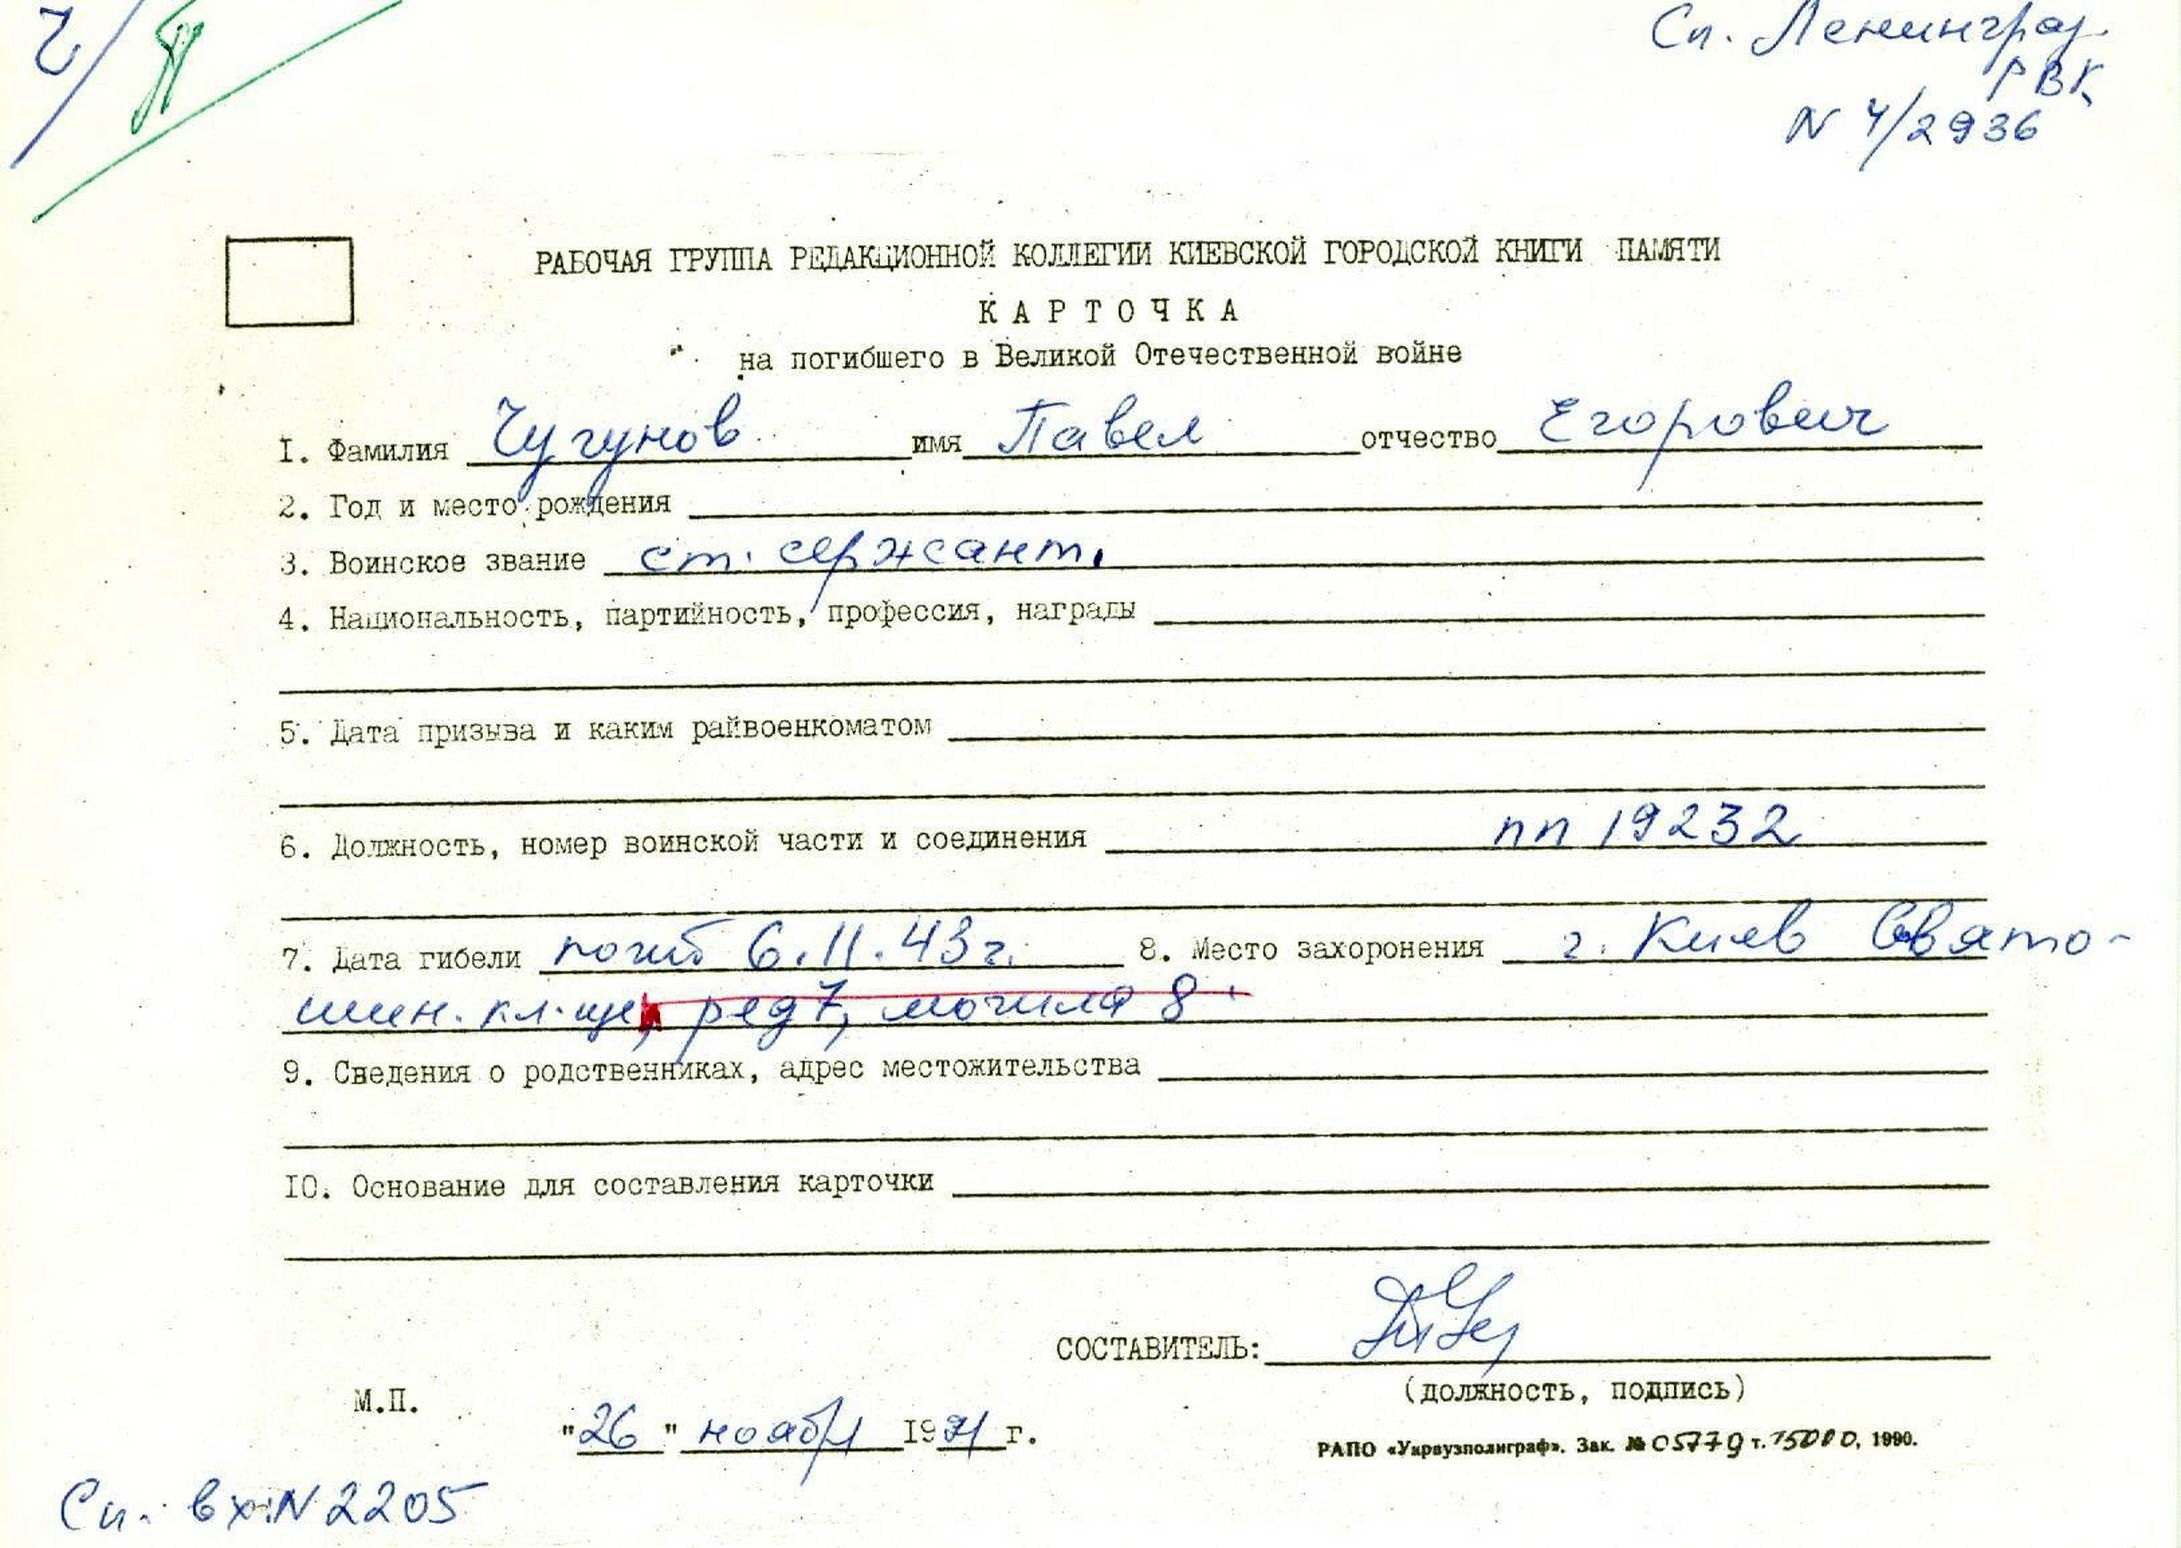 Ч
Сп. Ленинград.
РВК
N 4/2936
РАБОЧАЯ ГРУППА РЕДАКЦИОННОЙ КОЛЛЕГИИ КИЕВСКОЙ ГОРОДСКОЙ КНИГИ ПАМЯТИ
КАРТОЧКА
на погибшего в Великой Отечественной войне
1. Фамилия Чугунов имя Павел отчество Егорович
2. Год и место рождения
3. Воинское звание ст. сержант.
4. Национальность, партийность, профессия, награды
5. Дата призыва и каким райвоенкоматом
6. Должность, номер воинской части и соединения пп 19232
7. Дата гибели погиб 6.11.43г. 8. Место захоронения г. Киев Свято-
шин. кл-ще, ряд 7, могила 8
9. Сведения о родственниках, адрес местожительства
10. Основание для составления карточки
СОСТАВИТЕЛЬ:
(ДОЛЖНОСТЬ, ПОДПИСЬ)
М.П.
"26" ноября 1991 г.
РАПО «Укрвузполиграф». Зак. № 05779 т. 15000, 1990.
Сп. вх. N 2205